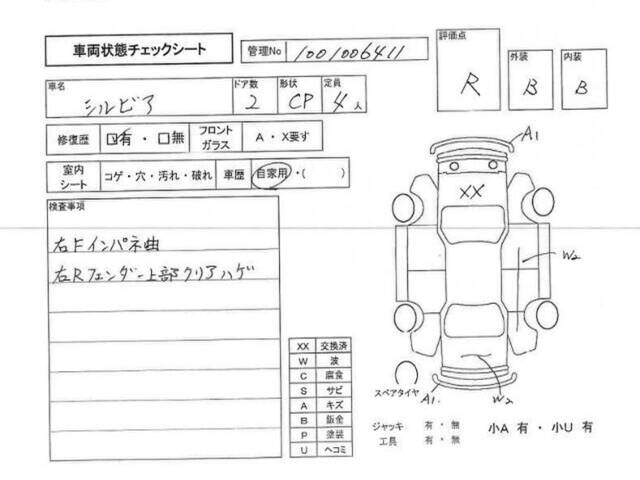 車両状態チェックシート
管理No 1001006411
評価点 R
外装 B
内装 B
車名 シルビア
ドア数 2
形状 CP
定員 4人
修復歴 ☑有・□無
フロントガラス A・X要す
室内シート コゲ・穴・汚れ・破れ
車歴 自家用・( )
検査事項
右Fインパネ曲
右Rフェンダー上部クリアハゲ
A1
XX
W2
XX 交換済
W 波
C 腐食
S サビ
A キズ
B 鈑金
P 塗装
U ヘコミ
スペアタイヤ
A1
W2
ジャッキ 有・無
工具 有・無
小A 有・小U 有